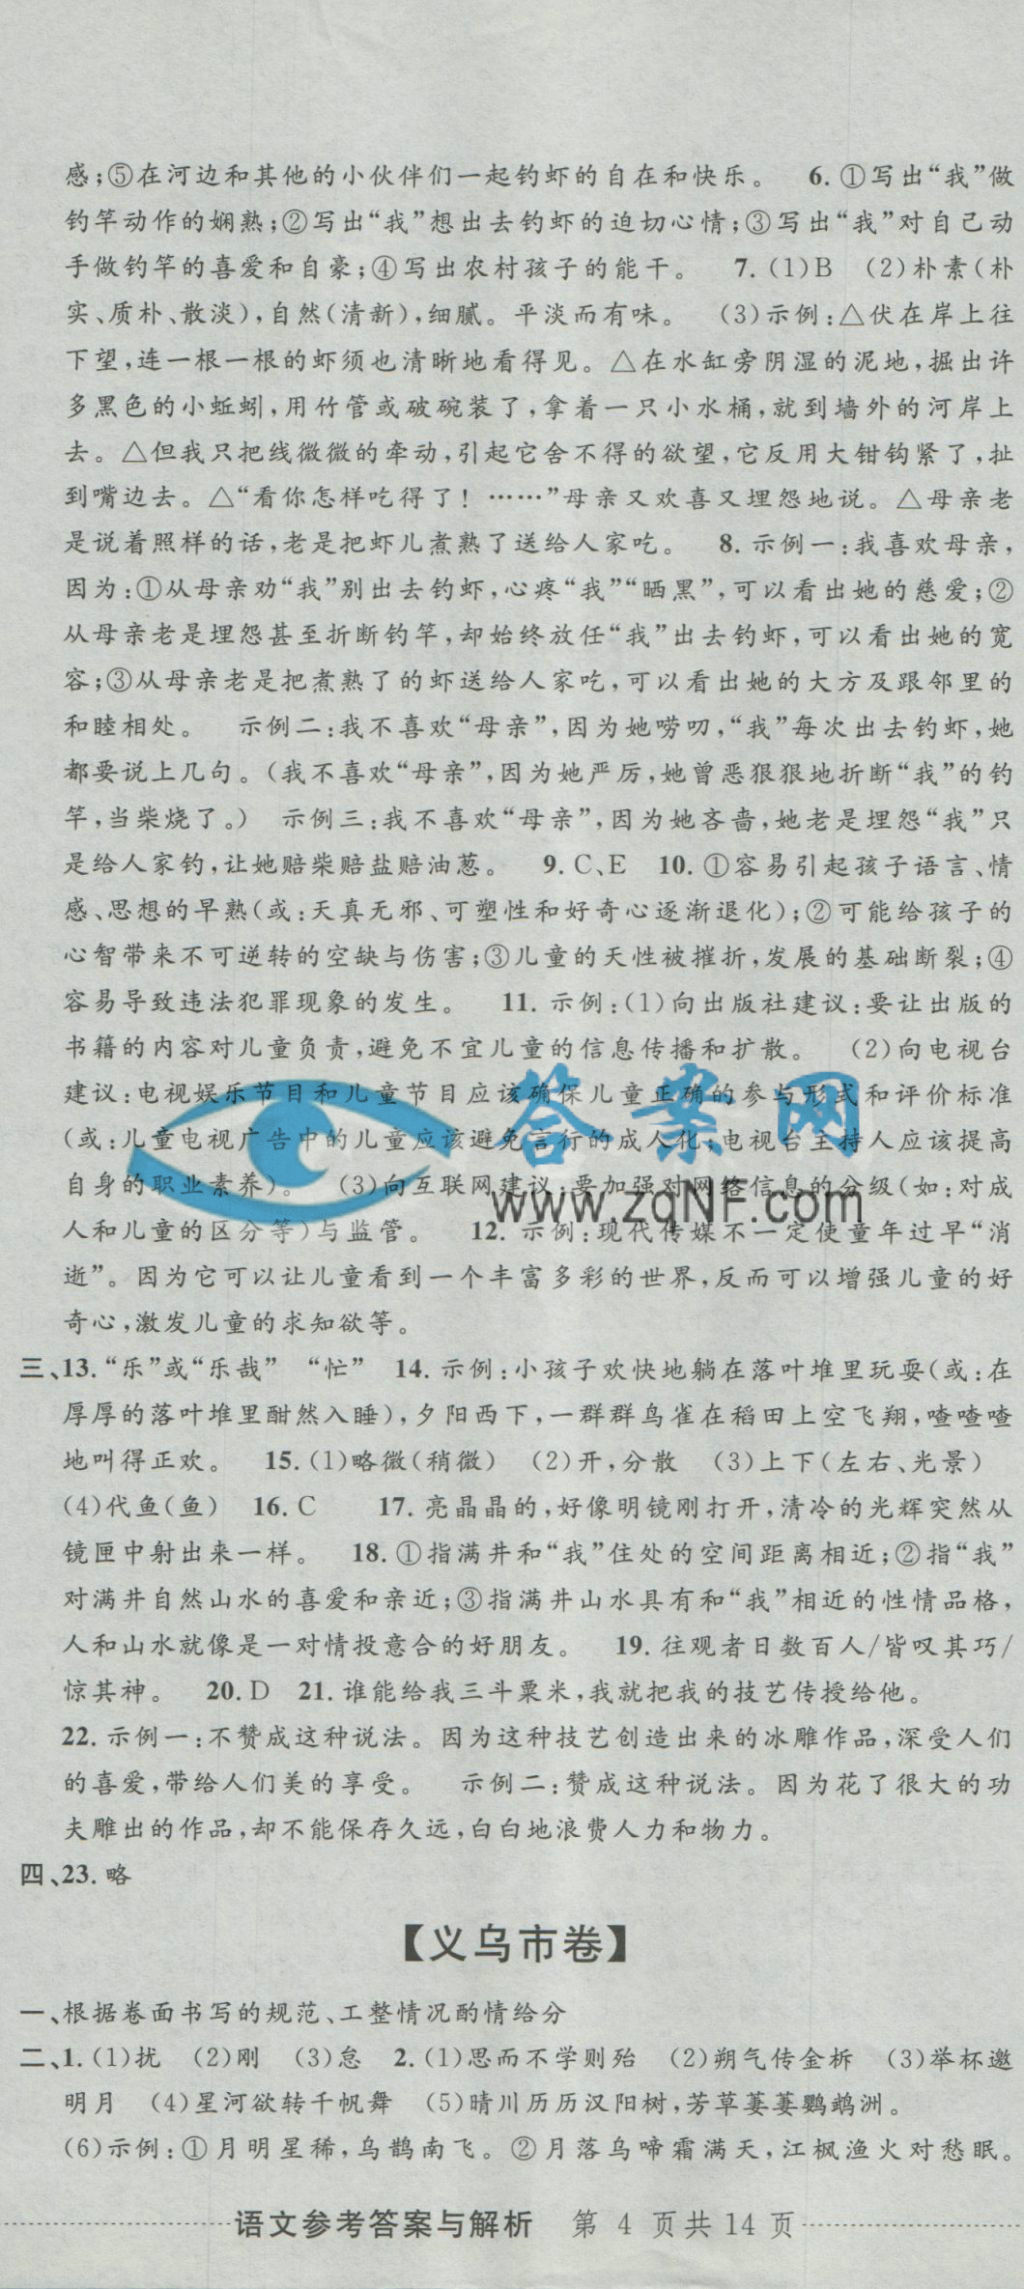 感;⑤在河边和其他的小伙伴们一起钓虾的自在和快乐。 6. ①写出“我”做
钓竿动作的娴熟;②写出“我”想出去钓虾的迫切心情;③写出“我”对自己动
手做钓竿的喜爱和自豪;④写出农村孩子的能干。 7. (1)B (2)朴素(朴
实、质朴、散淡),自然(清新),细腻。平淡而有味。 (3)示例:△伏在岸上往
下望,连一根一根的虾须也清晰地看得见。△在水缸旁阴湿的泥地,掘出许
多黑色的小蚯蚓,用竹管或破碗装了,拿着一只小水桶,就到墙外的河岸上
去。△但我只把线微微的牵动,引起它舍不得的欲望,它反用大钳钩紧了,扯
到嘴边去。△“看你怎样吃得了! ……”母亲又欢喜又埋怨地说。△母亲老
是说着照样的话,老是把虾儿煮熟了送给人家吃。 8. 示例一:我喜欢母亲,
因为:①从母亲劝“我”别出去钓虾,心疼“我”“晒黑”,可以看出她的慈爱;②
从母亲老是埋怨甚至折断钓竿,却始终放任“我”出去钓虾,可以看出她的宽
容;③从母亲老是把煮熟了的虾送给人家吃,可以看出她的大方及跟邻里的
和睦相处。 示例二:我不喜欢“母亲”,因为她唠叨,“我”每次出去钓虾,她
都要说上几句。(我不喜欢“母亲”,因为她严厉,她曾恶狠狠地折断“我”的钓
竿,当柴烧了。) 示例三:我不喜欢“母亲”,因为她吝啬,她老是埋怨“我”只
是给人家钓,让她赔柴赔盐赔油葱。 9. C、E 10. ①容易引起孩子语言、情
感、思想的早熟(或:天真无邪、可塑性和好奇心逐渐退化);②可能给孩子的
心智带来不可逆转的空缺与伤害;③儿童的天性被摧折,发展的基础断裂;④
容易导致违法犯罪现象的发生。 11. 示例:(1)向出版社建议:要让出版的
书籍的内容对儿童负责,避免不宜儿童的信息传播和扩散。 (2)向电视台
建议:电视娱乐节目和儿童节目应该确保儿童正确的参与形式和评价标准
(或:儿童电视广告中的儿童应该避免言行的成人化;电视台主持人应该提高
自身的职业素养)。 (3)向互联网建议:要加强对网络信息的分级(如:对成
人和儿童的区分等)与监管。 12. 示例:现代传媒不一定使童年过早“消
逝”。因为它可以让儿童看到一个丰富多彩的世界,反而可以增强儿童的好
奇心,激发儿童的求知欲等。
答案网
www.zqNF.com
三、13. “乐”或“乐哉” “忙” 14. 示例:小孩子欢快地躺在落叶堆里玩耍(或:在
厚厚的落叶堆里酣然入睡),夕阳西下,一群群鸟雀在稻田上空飞翔,喳喳喳
地叫得正欢。 15. (1)略微(稍微) (2)开,分散 (3)上下(左右、光景)
(4)代鱼(鱼) 16. C 17. 亮晶晶的,好像明镜刚打开,清冷的光辉突然从
镜匣中射出来一样。 18. ①指满井和“我”住处的空间距离相近;②指“我”
对满井自然山水的喜爱和亲近;③指满井山水具有和“我”相近的性情品格,
人和山水就像是一对情投意合的好朋友。 19. 往观者日数百人/皆叹其巧/
惊其神。 20. D 21. 谁能给我三斗粟米,我就把我的技艺传授给他。
22. 示例一:不赞成这种说法。因为这种技艺创造出来的冰雕作品,深受人们
的喜爱,带给人们美的享受。 示例二:赞成这种说法。因为花了很大的功
夫雕出的作品,却不能保存久远,白白地浪费人力和物力。
四、23. 略
【义乌市卷】
一、根据卷面书写的规范、工整情况酌情给分
二、1. (1)扰 (2)刚 (3)怠 2. (1)思而不学则殆 (2)朔气传金柝 (3)举杯邀
明月 (4)星河欲转千帆舞 (5)晴川历历汉阳树,芳草萋萋鹦鹉洲。
(6)示例:①月明星稀,乌鹊南飞。②月落乌啼霜满天,江枫渔火对愁眠。
语文参考答案与解析 第 4 页共 14 页